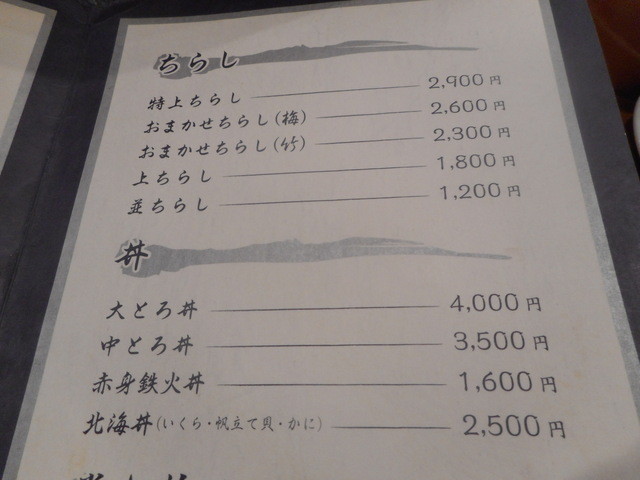 ちらし
特上ちらし 2,900円
おまかせちらし(梅) 2,600円
おまかせちらし(竹) 2,300円
上ちらし 1,800円
並ちらし 1,200円
丼
大とろ丼 4,000円
中とろ丼 3,500円
赤身鉄火丼 1,600円
北海丼(いくら・帆立て貝・かに) 2,500円